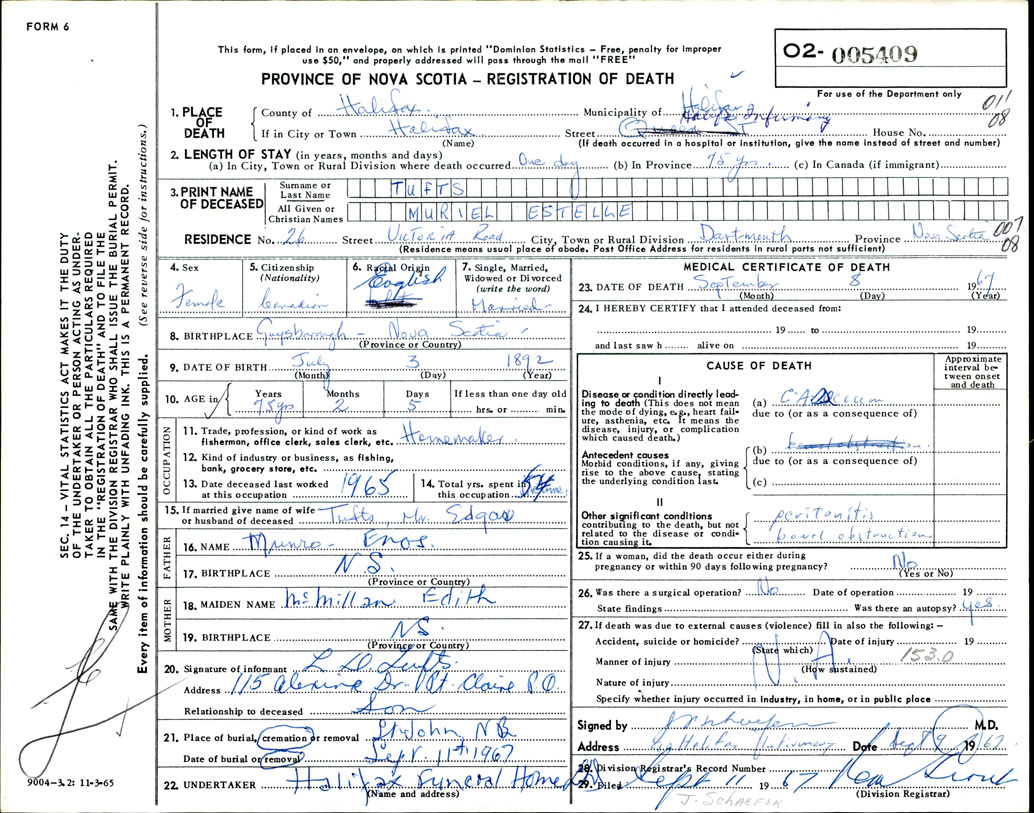 FORM 6
This form, if placed in an envelope, on which is printed "Dominion Statistics – Free, penalty for improper
use $50," and properly addressed will pass through the mail "FREE"
O2- 005409
PROVINCE OF NOVA SCOTIA – REGISTRATION OF DEATH
For use of the Department only
011
08
1. PLACE OF DEATH
County of Halifax Municipality of Halifax
Halifax Infirmary
If in City or Town Halifax Street House No.
(Name) (If death occurred in a hospital or institution, give the name instead of street and number)
2. LENGTH OF STAY (in years, months and days)
(a) In City, Town or Rural Division where death occurred One day (b) In Province 75 yrs. (c) In Canada (if immigrant)
3. PRINT NAME OF DECEASED
Surname or Last Name TUFTS
All Given or Christian Names MURIEL ESTELLE
RESIDENCE No. 26 Street Victoria Road City, Town or Rural Division Dartmouth Province Nova Scotia 007
08
(Residence means usual place of abode. Post Office Address for residents in rural parts not sufficient)
4. Sex Female
5. Citizenship (Nationality) Canadian
6. Racial Origin English
7. Single, Married, Widowed or Divorced (write the word) Married
8. BIRTHPLACE Guysborough – Nova Scotia
(Province or Country)
9. DATE OF BIRTH July 3 1892
(Month) (Day) (Year)
10. AGE in Years Months Days If less than one day old
75 yrs 2 5 hrs. or min.
OCCUPATION
11. Trade, profession, or kind of work as fisherman, office clerk, sales clerk, etc. Homemaker
12. Kind of industry or business, as fishing, bank, grocery store, etc.
13. Date deceased last worked at this occupation 1965
14. Total yrs. spent in this occupation
15. If married give name of wife or husband of deceased Tufts, Mr. Edgar
FATHER
16. NAME Munro – Enos.
17. BIRTHPLACE N.S.
(Province or Country)
MOTHER
18. MAIDEN NAME McMillan Edith
19. BIRTHPLACE NS.
(Province or Country)
20. Signature of informant L D Tufts
Address 115 Dr. Pt. Claire P.Q.
Relationship to deceased Son
21. Place of burial, cremation or removal St John, NB
Date of burial or removal Sept. 11th 1967
22. UNDERTAKER Halifax Funeral Home
(Name and address)
MEDICAL CERTIFICATE OF DEATH
23. DATE OF DEATH September 8 1967
(Month) (Day) (Year)
24. I HEREBY CERTIFY that I attended deceased from:
19 to 19
and last saw h alive on 19
CAUSE OF DEATH
Approximate interval between onset and death
I
Disease or condition directly leading to death (This does not mean the mode of dying, e.g., heart failure, asthenia, etc. It means the disease, injury, or complication which caused death.)
(a) CA cecum
due to (or as a consequence of)
Antecedent causes
Morbid conditions, if any, giving rise to the above cause, stating the underlying condition last.
(b) bowel obstruction
due to (or as a consequence of)
(c)
II
Other significant conditions contributing to the death, but not related to the disease or condition causing it.
peritonitis
bowel obstruction
25. If a woman, did the death occur either during pregnancy or within 90 days following pregnancy? No
(Yes or No)
26. Was there a surgical operation? No Date of operation 19
State findings Was there an autopsy? yes
27. If death was due to external causes (violence) fill in also the following: –
Accident, suicide or homicide? Date of injury 19
(State which)
N.A.
153.0
Manner of injury
(How sustained)
Nature of injury
Specify whether injury occurred in Industry, in home, or in public place
Signed by M.D.
Address Halifax Infirmary Date Sept 9 1967
28. Division Registrar's Record Number
29. Filed Sept 11 1967
(Division Registrar)
J. SCHAEFER
SEC. 14 – VITAL STATISTICS ACT MAKES IT THE DUTY
OF THE UNDERTAKER OR PERSON ACTING AS UNDER-
TAKER TO OBTAIN ALL THE PARTICULARS REQUIRED
IN THE "REGISTRATION OF DEATH" AND TO FILE THE
SAME WITH THE DIVISION REGISTRAR WHO SHALL ISSUE THE BURIAL PERMIT.
WRITE PLAINLY WITH UNFADING INK. THIS IS A PERMANENT RECORD.
Every item of information should be carefully supplied. (See reverse side for instructions.)
9004–3.2: 11-3-65